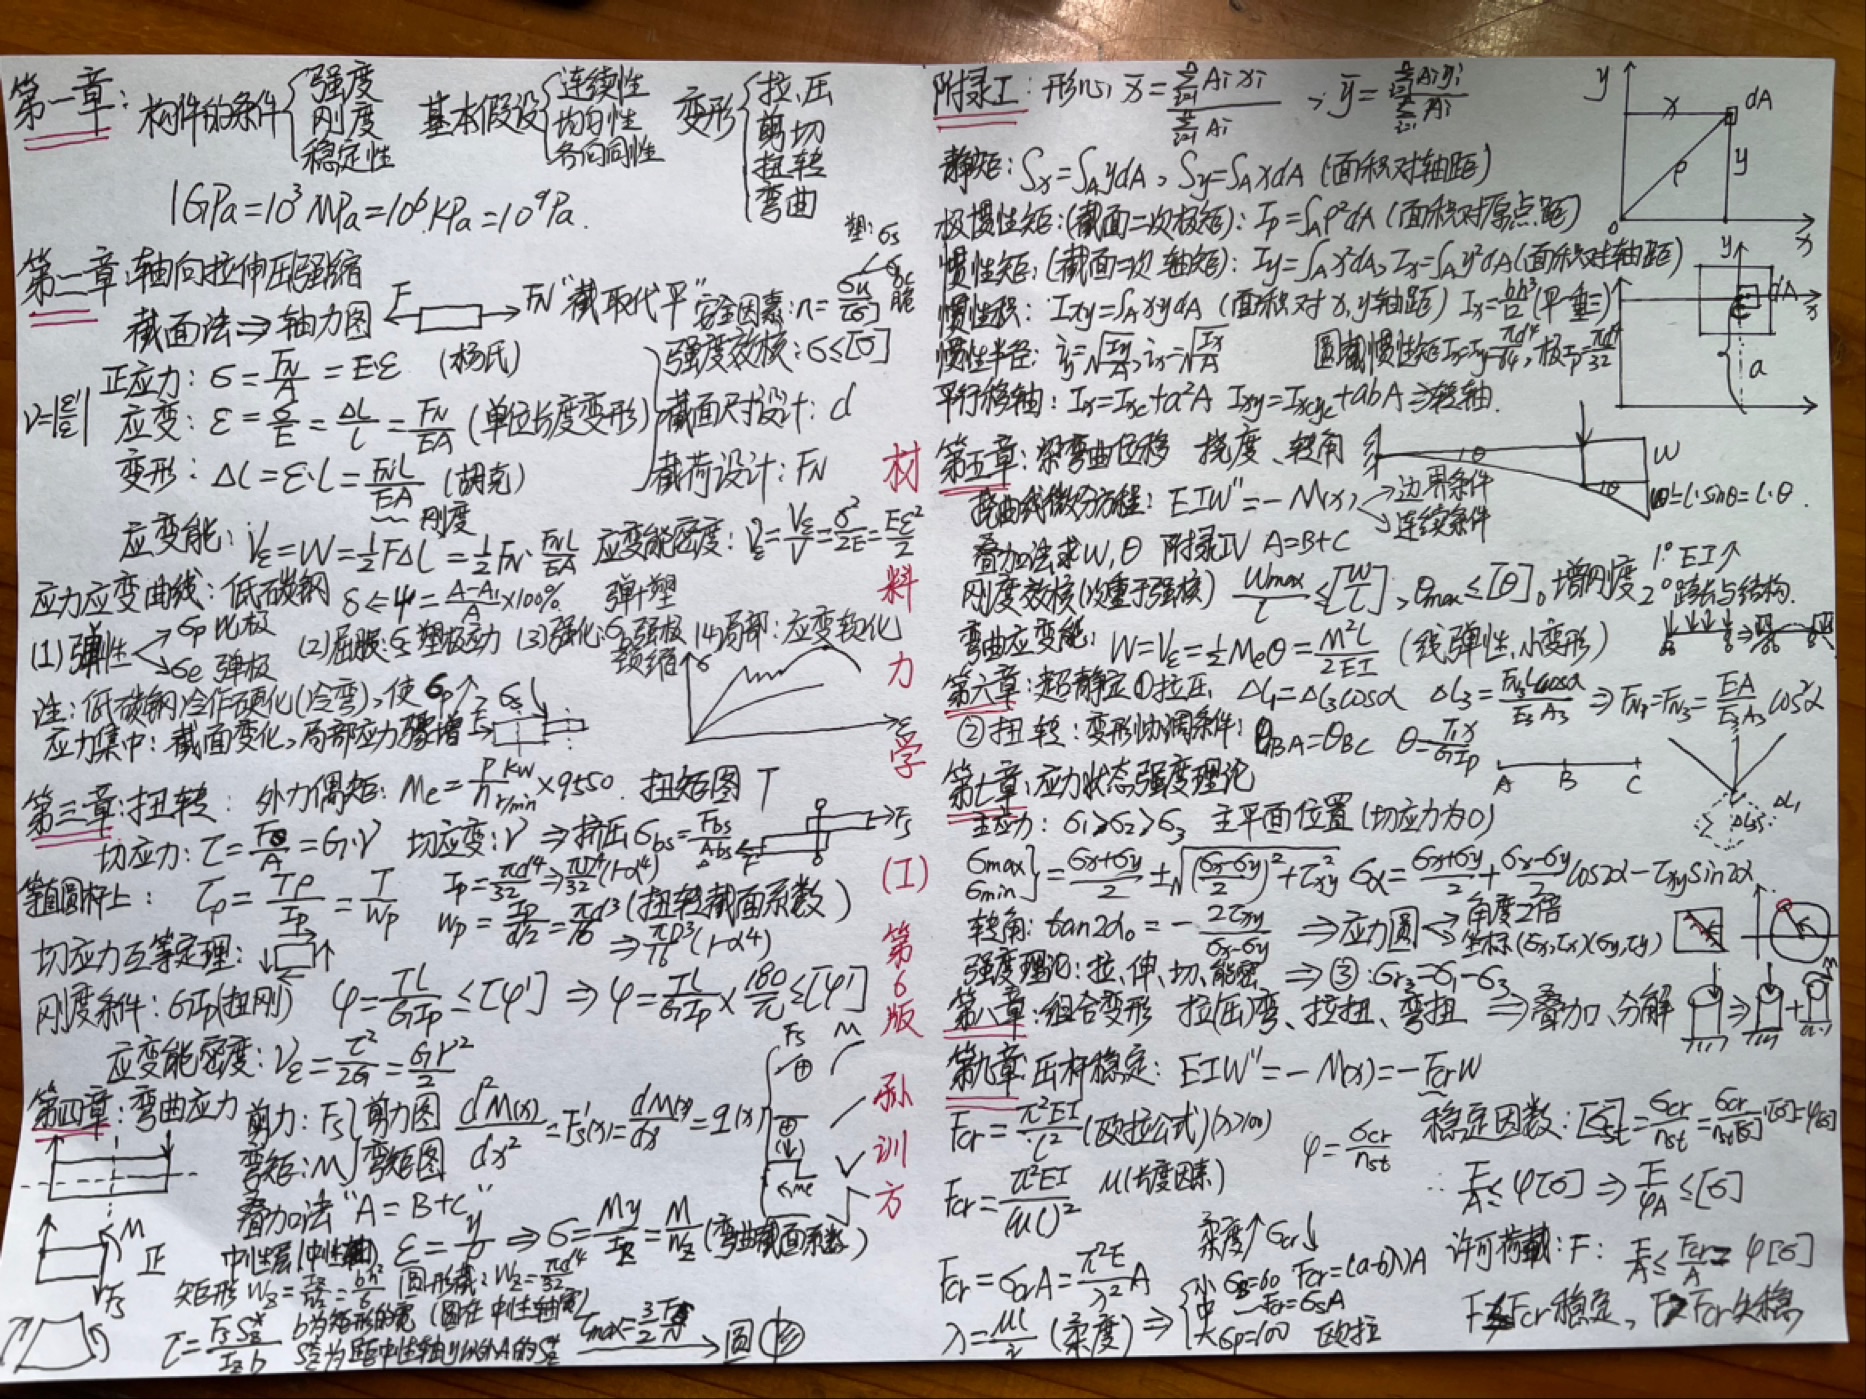 第一章: 构件的条件 { 强度 刚度 稳定性 基本假设 { 连续性 均匀性 各向同性 变形 { 拉、压 剪切 扭转 弯曲
1GPa=10³MPa=10⁶KPa=10⁹Pa.
第二章:轴向拉伸压缩
截面法⇒轴力图 F FN "截取代平"
安全因素:n=σu/[σ] 塑:σs 脆
正应力: σ=FN/A=E·ε (杨氏)
强度效核:σ≤[σ]
ν=|ε'/ε|
应变: ε=σ/E=ΔL/L=FN/EA (单位长度变形)
截面尺寸设计: d
变形: ΔL=ε·L=FNL/EA (胡克)
刚度
截荷设计: FN
应变能: Vε=W=½FΔL=½FN·FNL/EA 应变能密度: Vε=Vε/V=σ²/2E=Eε²/2
应力应变曲线: 低碳钢 δ≤ψ=A-A₁/A×100% 弹+塑
(1)弹性 σp 比极 σe 弹极 (2)屈服:σs 塑极应力 (3)强化:σb强极 颈缩 (4)局部:应变软化
注:低碳钢冷作硬化(冷弯),使σp↑
应力集中: 截面变化,局部应力骤增
σ ε
第三章:扭转: 外力偶矩: Me=P kW/n r/min×9550. 扭矩图 T
切应力: τ=Fs/A=G·γ 切应变:γ ⇒挤压σbs=Fbs/Abs
Fs
等直圆杆上: τρ=Tρ/Ip=T/Wp Ip=πd⁴/32⇒πD⁴/32(1-α⁴)
Wp=Ip/d/2=πd³/16(扭转截面系数)
⇒πD³/16(1-α⁴)
切应力互等定理:
刚度条件: GIp(扭刚) φ=TL/GIp≤[φ'] ⇒ φ=TL/GIp×180/π≤[φ']
应变能密度: Vε=τ²/2G=Gγ²/2
Fs M
第四章:弯曲应力 剪力: Fs 剪力图 d²M(x)/dx²=Fs'(x)=dM(x)/dx=q(x)
弯矩: M 弯矩图
叠加法 "A=B+C"
M 正 Fs
中性层(中性轴) ε=y/ρ ⇒ σ=My/Iz=M/Wz(弯曲截面系数)
矩形 Wz=bh²/6 圆形截: Wz=πd³/32
τ=FsSz*/Izb b为矩形的宽 (圆在中性轴宽)
τmax=3/2 Fs/A → 圆
材料力学(I)第6版 孙训方
附录I: 形心 x̄=ΣAixi/ΣAi , ȳ=ΣAiyi/ΣAi
y x dA ρ y 0 x
静矩: Sx=∫A ydA, Sy=∫A xdA (面积对轴距)
极惯性矩:(截面二次极矩): Ip=∫Aρ²dA (面积对原点距)
惯性矩:(截面二次轴矩): Iy=∫A x²dA, Ix=∫A y²dA (面积对轴距)
惯性积: Ixy=∫A xydA (面积对x,y轴距) Ix=bh³/12
惯性半径: iy=√Iy/A, ix=√Ix/A 圆截惯性矩Ix=Iy=πd⁴/64, 极Ip=πd⁴/32
平行移轴: Ix=Ixc+a²A Ixy=Ixcyc+abA ⇒转轴.
y dA x a
第五章:梁弯曲位移 挠度、转角
θ W
挠曲线微分方程: EIW''=-M(x) 边界条件 连续条件
W=L·sinθ=L·θ.
叠加法求W,θ 附录IV A=B+C
刚度效核(次重于强核) Wmax/L≤[W/L], θmax≤[θ]。增刚度 1° EI↑ 2° 跨长与结构.
弯曲应变能: W=Vε=½Meθ=M²L/2EI (线弹性,小变形)
第六章:超静定①拉压, ΔL₁=ΔL₃cosα ΔL₃=FN₃Lcosα/E₃A₃ ⇒FN₁=FN₃ EA/E₃A₃ cos²α
②扭转:变形协调条件: θBA=θBC θ=T₁x/GIp
A B C ΔL₁ ΔL₃
第七章:应力状态强度理论
主应力: σ₁≥σ₂≥σ₃ 主平面位置(切应力为0)
σmax σmin }=σx+σy/2±√(σx-σy/2)²+τ²xy σα=σx+σy/2+σx-σy/2cos2α-τxysin2α
转角: tan2α₀=-2τxy/σx-σy ⇒应力圆 角度2倍 坐标(σx,τx)(σy,τy)
强度理论:拉、伸、切、能密 ⇒③:σr₃=σ₁-σ₃
第八章:组合变形 拉(压)弯、拉扭、弯扭 ⇒叠加、分解
第九章:压杆稳定: EIW''=-M(x)=-FcrW
Fcr=π²EI/L²(欧拉公式)(λ≥100) φ=σcr/nst 稳定因数:[σst]=σcr/nst=σcr/nst[σ]·[σ]=φ[σ]
Fcr=π²EI/(μL)² μ(长度因素) ∴F/A≤φ[σ]⇒F/φA≤[σ]
柔度↑σcr↓
许可荷载:F: F/A≤Fcr/A=φ[σ]
Fcr=σcrA=π²E/λ²A
λ=μL/i (柔度) ⇒ 小 中 大 Fcr=(a-bλ)A Fcr=σsA σp=100 欧拉
Fcr稳定, Fcr失稳